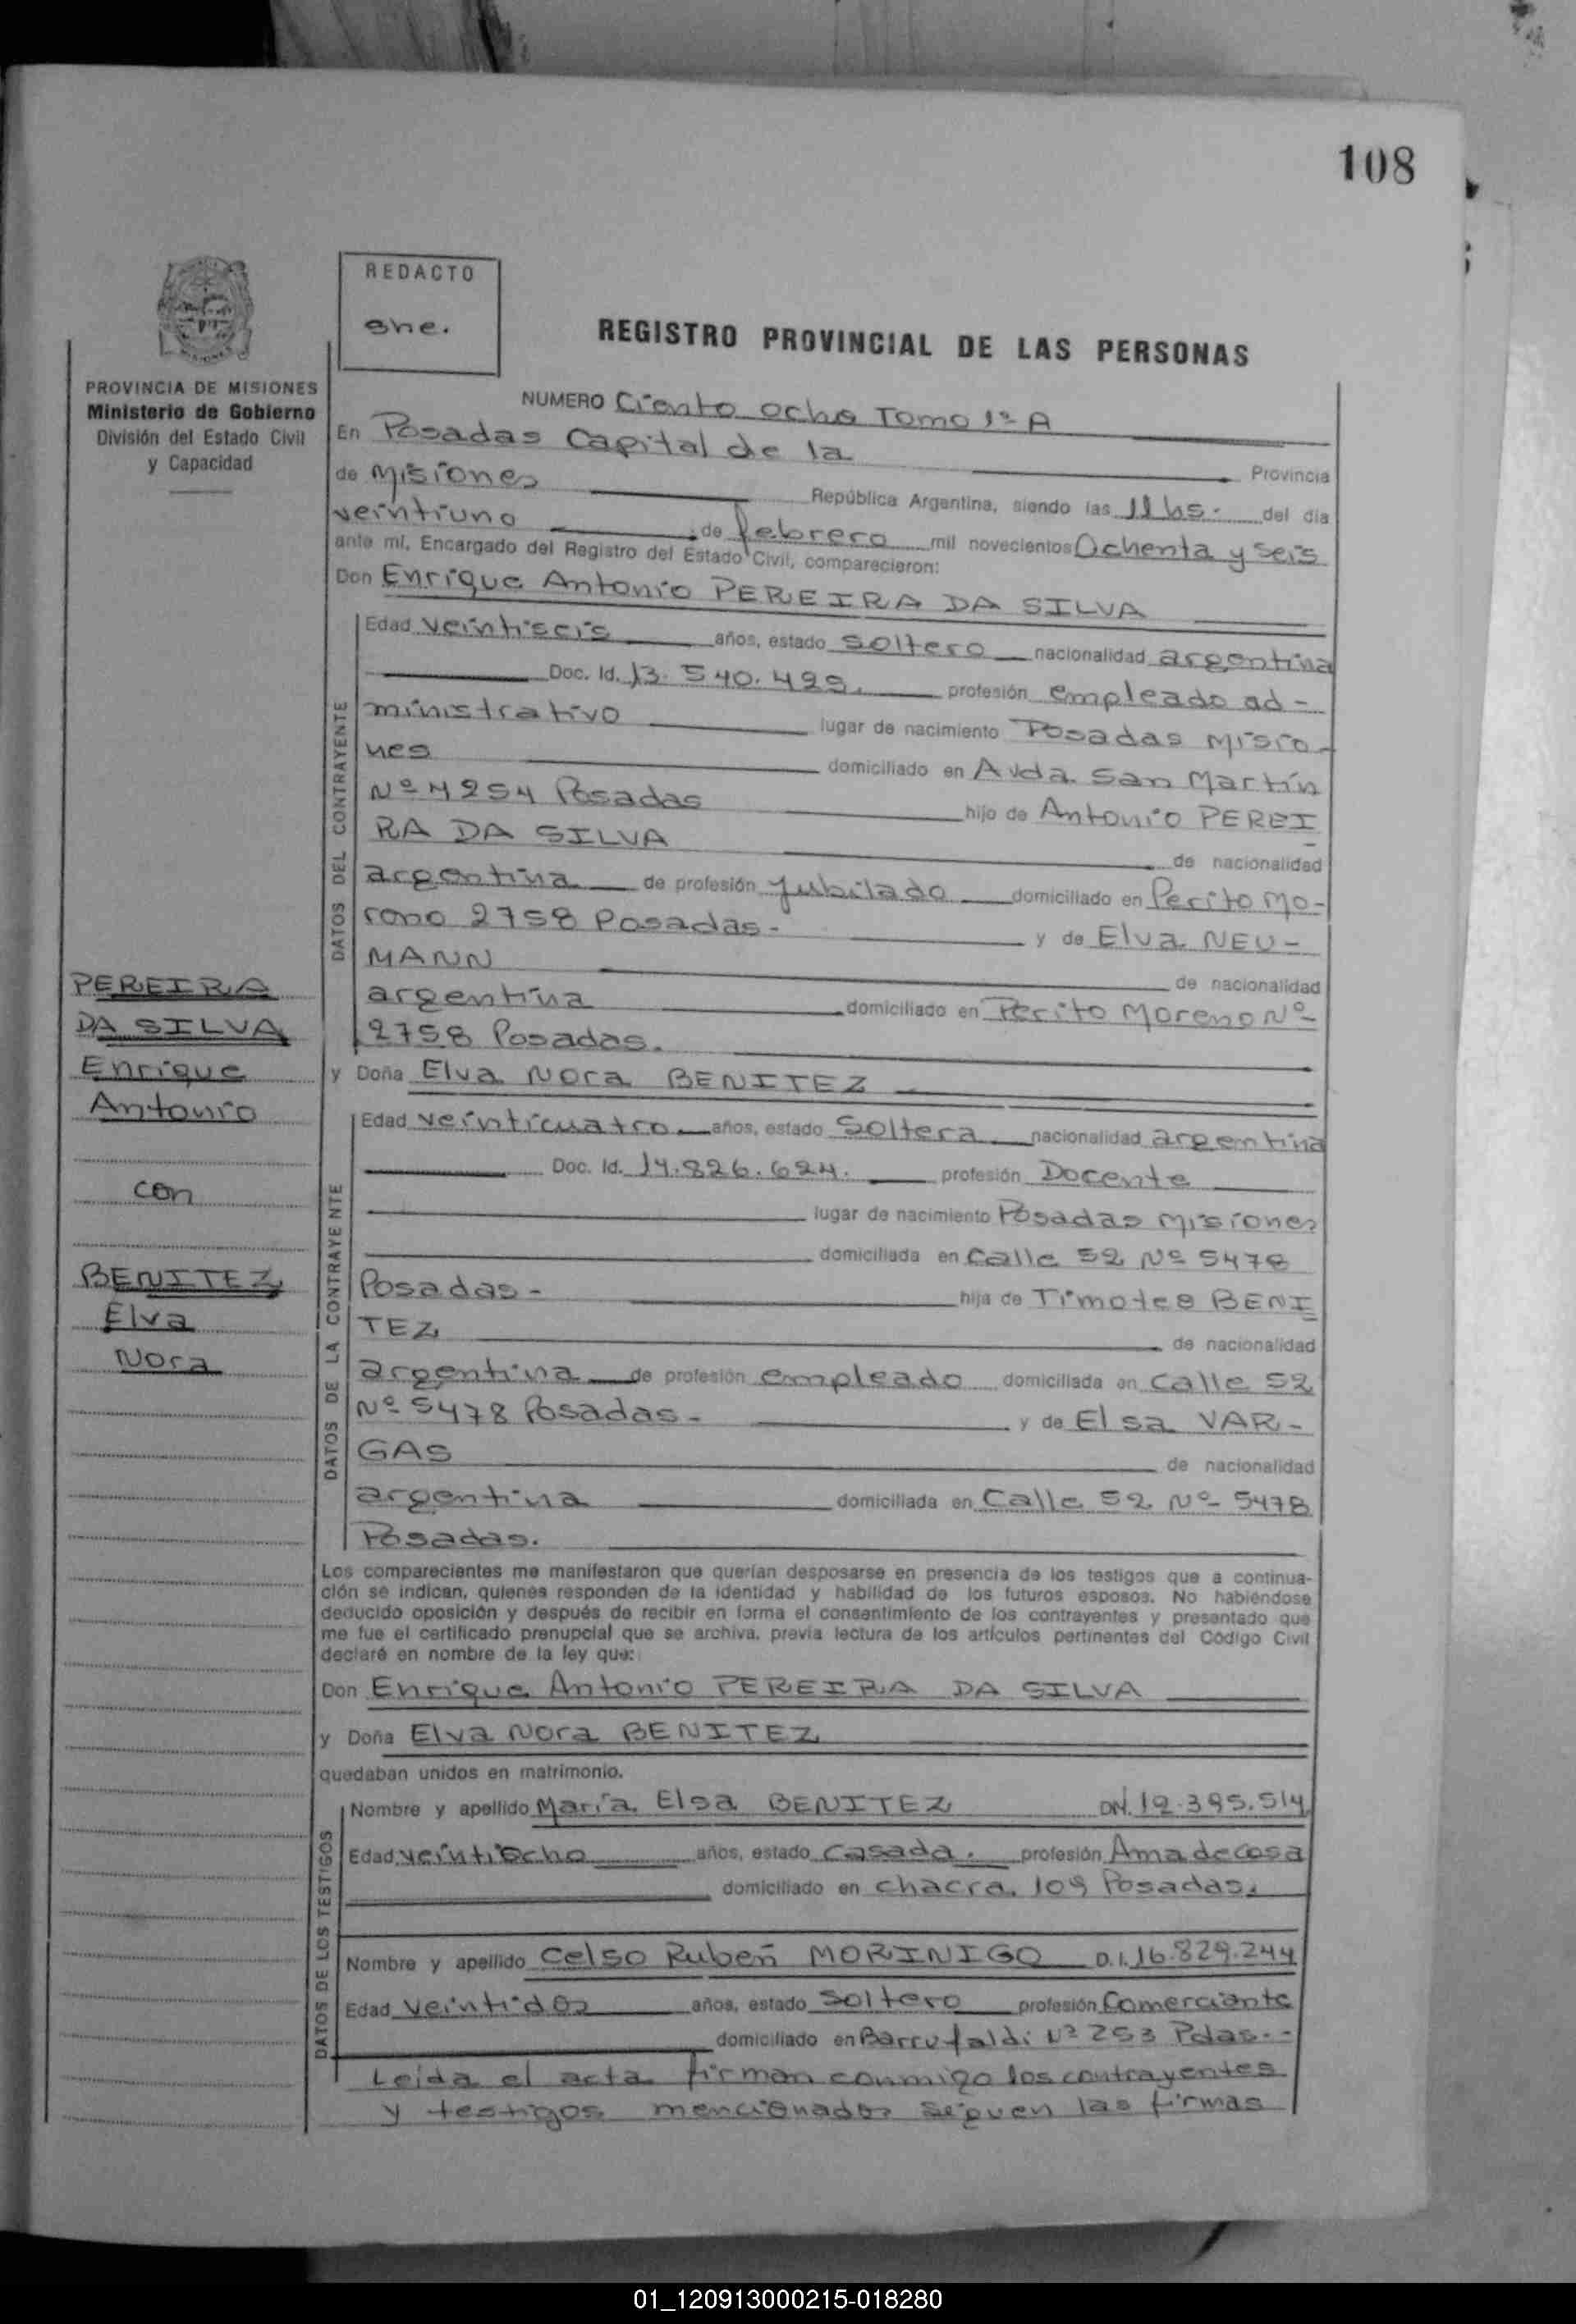 108
REDACTO
ene.
REGISTRO PROVINCIAL DE LAS PERSONAS
PROVINCIA DE MISIONES
Ministerio de Gobierno
División del Estado Civil
y Capacidad
NUMERO Ciento ocho Tomo 1º A
En Posadas Capital de la Provincia
de Misiones República Argentina, siendo las 11 hs. del día
veintiuno de febrero mil novecientos Ochenta y seis
ante mí, Encargado del Registro del Estado Civil, comparecieron:
Don Enrique Antonio PEREIRA DA SILVA
DATOS DEL CONTRAYENTE
Edad veintiseis años, estado soltero nacionalidad argentina
Doc. Id. 13.540.429. profesión empleado ad-
ministrativo lugar de nacimiento Posadas Misio-
nes domiciliado en Avda. San Martín
Nº 4254 Posadas hijo de Antonio PEREI
RA DA SILVA de nacionalidad
argentina de profesión jubilado domiciliado en Perito Mo-
reno 2758 Posadas- y de Elva NEU-
MANN de nacionalidad
argentina domiciliado en Perito Moreno Nº
2758 Posadas.
PEREIRA
DA SILVA
Enrique
Antonio
con
BENITEZ
Elva
Nora
y Doña Elva Nora BENITEZ
DATOS DE LA CONTRAYENTE
Edad veinticuatro años, estado Soltera nacionalidad argentina
Doc. Id. 14.826.624. profesión Docente
lugar de nacimiento Posadas Misiones
domiciliada en Calle 52 Nº 5478
Posadas- hija de Timoteo BENI
TEZ de nacionalidad
argentina de profesión empleado domiciliada en Calle 52
Nº 5478 Posadas- y de Elsa VAR-
GAS de nacionalidad
argentina domiciliada en Calle 52 Nº 5478
Posadas.
Los comparecientes me manifestaron que querían desposarse en presencia de los testigos que a continua-
ción se indican, quienes responden de la identidad y habilidad de los futuros esposos. No habiéndose
deducido oposición y después de recibir en forma el consentimiento de los contrayentes y presentado que
me fue el certificado prenupcial que se archiva, previa lectura de los artículos pertinentes del Código Civil
declaré en nombre de la ley que:
Don Enrique Antonio PEREIRA DA SILVA
y Doña Elva Nora BENITEZ
quedaban unidos en matrimonio.
DATOS DE LOS TESTIGOS
Nombre y apellido María Elsa BENITEZ DNI. 12.395.514
Edad veintiocho años, estado casada. profesión Ama de casa
domiciliado en chacra. 109 Posadas.
Nombre y apellido Celso Rubén MORINIGO D.I. 16.829.244
Edad veintidos años, estado soltero profesión Comerciante
domiciliado en Barrufaldi Nº 253 Pdas.-
Leída el acta firman conmigo los contrayentes
y testigos mencionados siguen las firmas
01_120913000215-018280